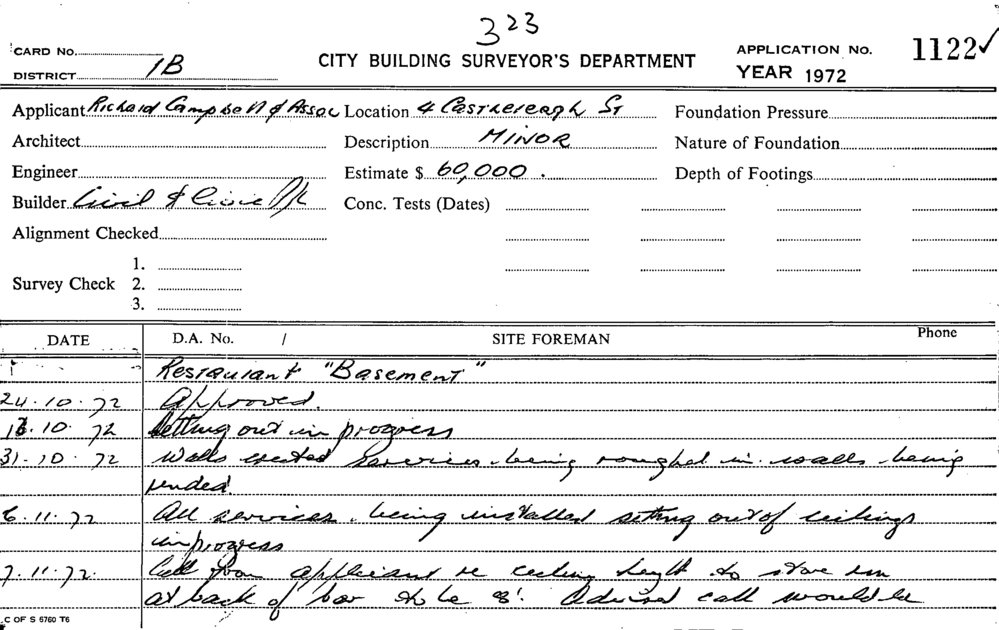 323
CARD No.
CITY BUILDING SURVEYOR'S DEPARTMENT
APPLICATION No. 1122✓
DISTRICT 1B
YEAR 1972
Applicant Richard Campbell & Assoc Location 4 Castlereagh St Foundation Pressure
Architect Description MINOR Nature of Foundation
Engineer Estimate $ 60,000. Depth of Footings
Builder Civil & Civic P/L Conc. Tests (Dates)
Alignment Checked
1.
Survey Check 2.
3.
DATE D.A. No. / SITE FOREMAN Phone
Restaurant "Basement"
24.10.72 Approved.
10.72 Setting out in progress
31.10.72 Walls erected services being roughed in walls being
6.11.72 All services being installed setting out of ceilings
in progress
7.11.72. Call from applicant re ceiling height to store rm
at back of bar to be 8'. Advised call would be
C OF S 6760 T6